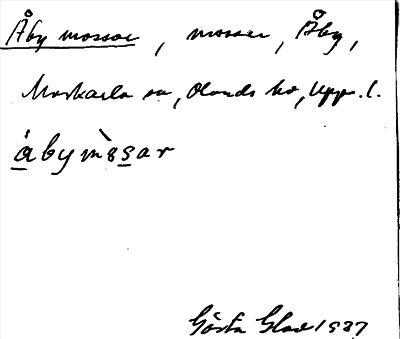 Åby mossar, mossar, Åby,
Morkarla sn, Olands hd, Upp. l.
åbymòsar
Gösta Glad 1937